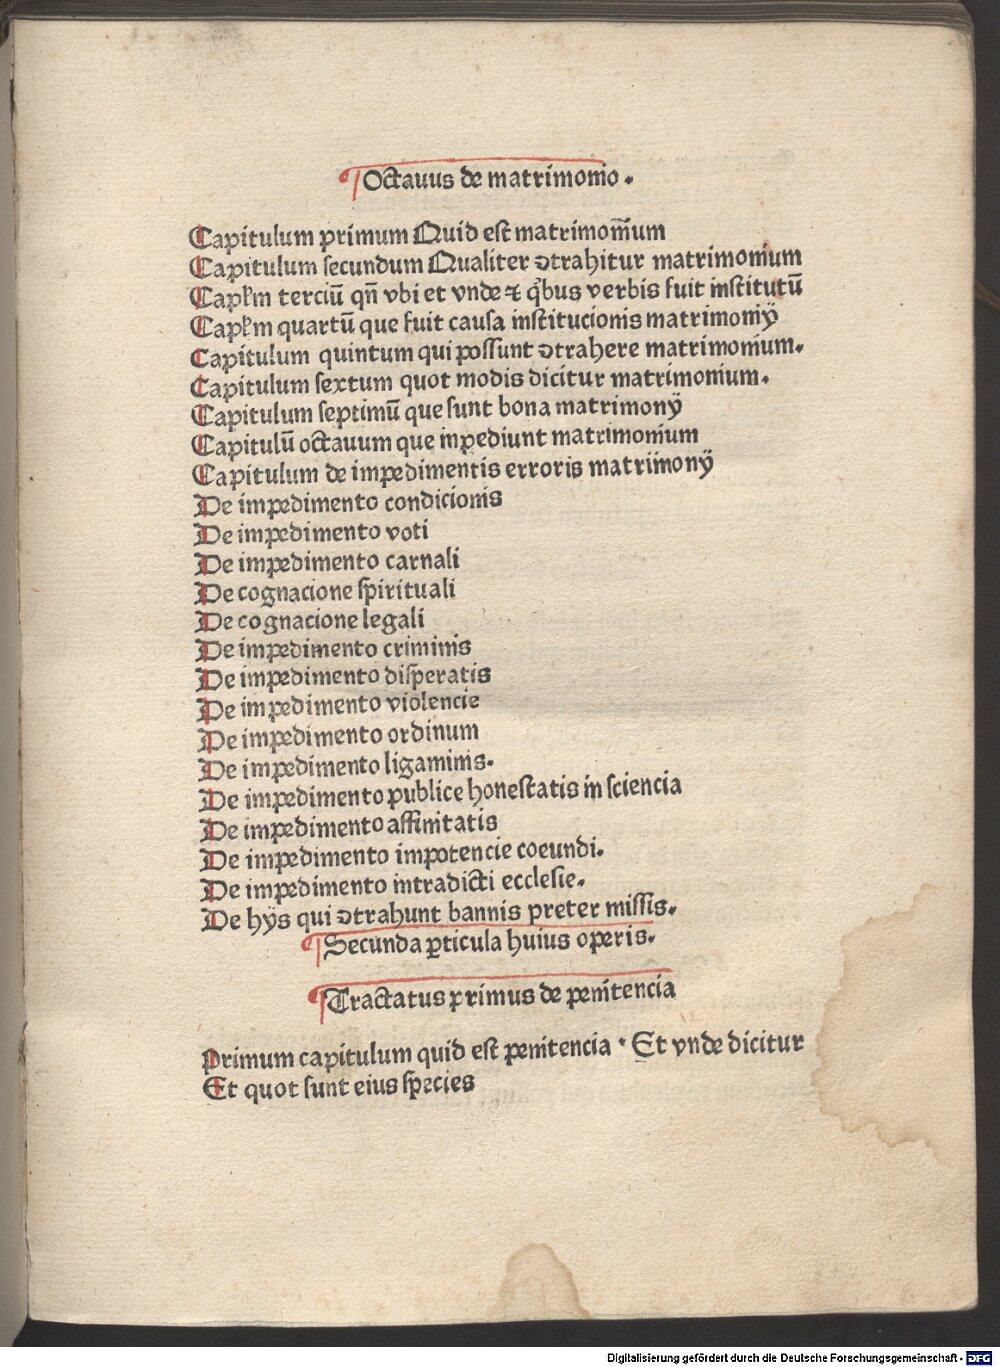 Octauus de matrimonio.
Capitulum primum Quid est matrimoniūm
Capitulum secundum Qualiter ↄtrahitur matrimonium
Capl̄m terciū qn̄ vbi et vnde ⁊ qͥbus verbis fuit institutū
Capl̄m quartū que fuit causa institucionis matrimonij
Capitulum quintum qui possunt ↄtrahere matrimonium.
Capitulum sextum quot modis dicitur matrimonium.
Capitulum septimū que sunt bona matrimonij
Capitulū octauum que inpediunt matrimonium
Capitulum de impedimentis erroris matriimonij
De impedimento condicionis
De impedimento voti
De impedimento carnali
De cognacione spirituali
De cognacione legali
De impedimento criminis
De impedimento disperatis
De impedimento violencie
De impedimento ordinum
De impedimento ligaminis.
De impedimento publice honestatis in sciencia
De impedimento affinitatis
De impedimento impotencie coeundi.
De impedimento intradicti ecclesie.
De hijs qui ↄtrahunt bannis preter missis.
Secunda ꝑticula huius operis.
Tractatus primus de penitencia
Primum capitulum quid est penitencia · Et vnde dicitur
Et quot sunt eius species
Digitalisierung gefördert durch die Deutsche Forschungsgemeinschaft - DFG